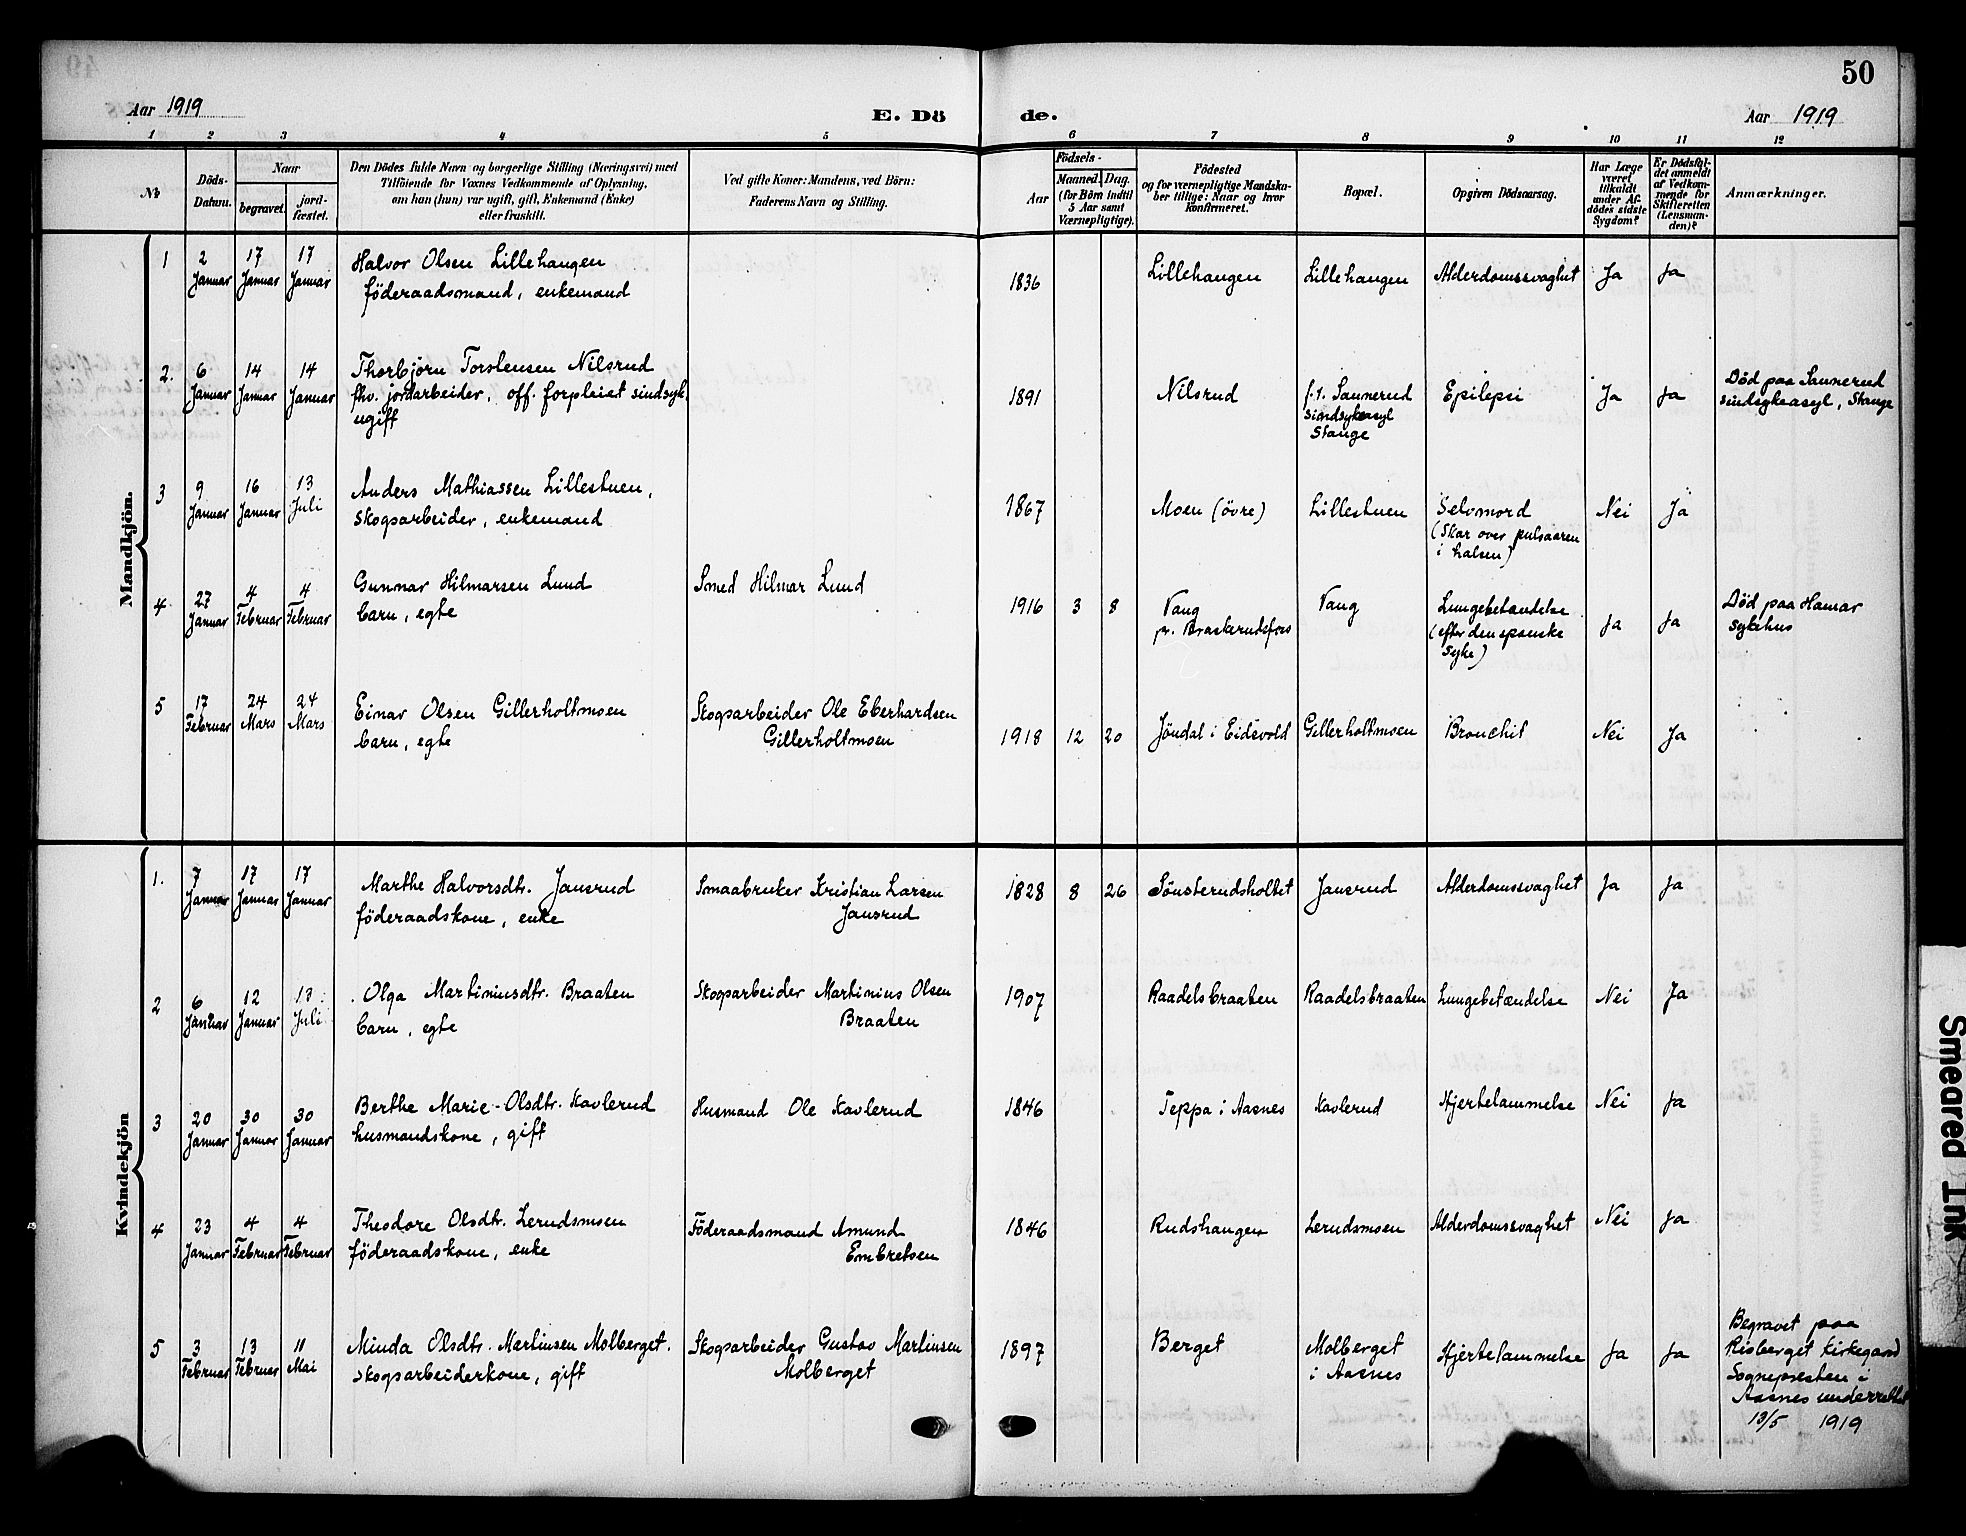 50
Aar 1919
E. Dö
de.
Aar 1919
1 2 3 4 5 6 7 8 9 10 11 12
№
Döds-
Datum.
Naar
begravet.
jord-
fæstet.
Den Dödes fulde Navn og borgerlige Stilling (Næringsvei) med
Tilföiende for Voxnes Vedkommende af Oplysning,
om han (hun) var ugift, gift, Enkemand (Enke)
eller fraskilt.
Ved gifte Koner: Mandens, ved Börn:
Faderens Navn og Stilling.
Födsels-
Aar
Maaned. Dag.
(for Börn indtil
5 Aar samt
Værnepligtige).
Födested
og for værnepligtige Mandska-
ber tillige: Naar og hvor
konfirmeret.
Bopæl.
Opgiven Dödsaarsag.
Har Læge
været
tilkaldt
under Af-
dödes sidste
Sygdom?
Er Dödsfal-
det anmeldt
af Vedkom-
mende for
Skifteretten
(Lensman-
den)?
Anmærkninger.
Mandkjön.
1 2 Januar 17 Januar 17 Januar Halvor Olsen Lillehaugen
föderaadsmand, enkemand
1836 Lillehaugen Lillehaugen Alderdomssvaghet Ja Ja
2. 6 Januar 14 Januar 14 Januar Thorbjörn Torstensen Nilsrud
fhv. jordarbeider, off. forpleiet sindsyk,
ugift
1891 Nilsrud f.t. Sannerud
sindsykeasyl
Stange
Epilepsi Ja Ja Död paa Sannerud
sindsykeasyl, Stange
3 9 Januar 16 Januar 13 Juli Anders Mathiassen Lillestuen,
skogsarbeider, enkemand
1867 Moen (övre) Lillestuen Selvmord
(skar over pulsaaren
i halsen)
Nei Ja
4 27 Januar 4 Februar 4 Februar Gunnar Hilmarsen Lund
barn, egte
Smed Hilmar Lund
1916 3 8 Vang
pr. Braskerudsfoss
Vang Lungebetændelse
(efter den spanske
syke)
Ja Ja Död paa Hamar
sykehus
5 17 Februar 24 Mars 24 Mars Einar Olsen Gillerholtmoen
barn, egte
Skogsarbeider Ole Eberhardsen
Gillerholtmoen
1918 12 20 Jöndal i Eidsvold Gillerholtmoen Bronchit Nei Ja
Kvindekjön
1. 7 Januar 17 Januar 17 Januar Marthe Halvorsdtr. Jansrud
föderaadskone, enke
Smaabruker Kristian Larsen
Jansrud
1828 8 26 Sönsterudsholtet Jansrud Alderdomssvaghet Ja Ja
2 6 Januar 12 Januar 13 Juli Olga Martiniusdtr. Braaten
barn, egte
Skogsarbeider Martinius Olsen
Braaten
1907 Raadelsbraaten Raadelsbraaten Lungebetændelse Nei Ja
3 20 Januar 30 Januar 30 Januar Berthe Marie Olsdtr. Kavlerud
husmandskone, gift
Husmand Ole Kavlerud
1846 Teppa i Aasnes Kavlerud Hjertelammelse Nei Ja
4 23 Januar 4 Februar 4 Februar Theodore Olsdtr. Lerudsmoen
föderaadskone, enke
Föderaadsmand Amund
Embretsen
1846 Rudshaugen Lerudsmoen Alderdomssvaghet Nei Ja
5 3 Februar 13 Februar 11 Mai Minda Olsdtr. Martinsen Molberget.
skogsarbeiderkone, gift
Skogsarbeider Gustav Martinsen
Molberget
1897 Berget Molberget
i Aasnes
Hjertelammelse Ja Ja Begravet paa
Risberget kirkegaard
Sognepresten i
Aasnes underrettet
13/5 1919
Smeared Ink